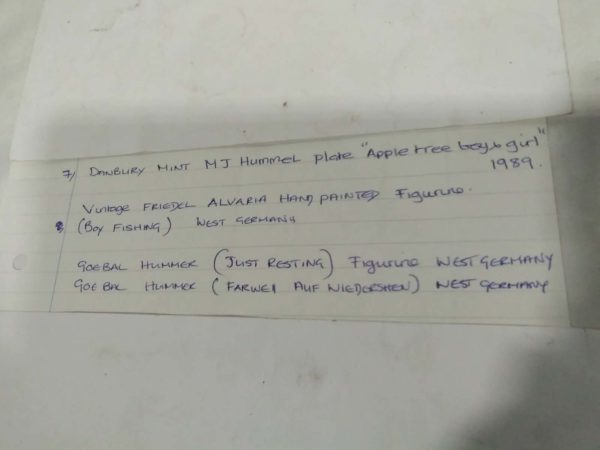 7) DANBURY MINT MJ Hummel plate "Apple tree boy & girl"
1989.
Vintage FRIEDEL ALVARIA HAND PAINTED Figurine.
(BOY FISHING) WEST GERMANY
GOEBAL HUMMER (JUST RESTING) Figurine WEST GERMANY
GOEBAL HUMMER (FARWEI AUF WIEDORSHEN) WEST GERMANY